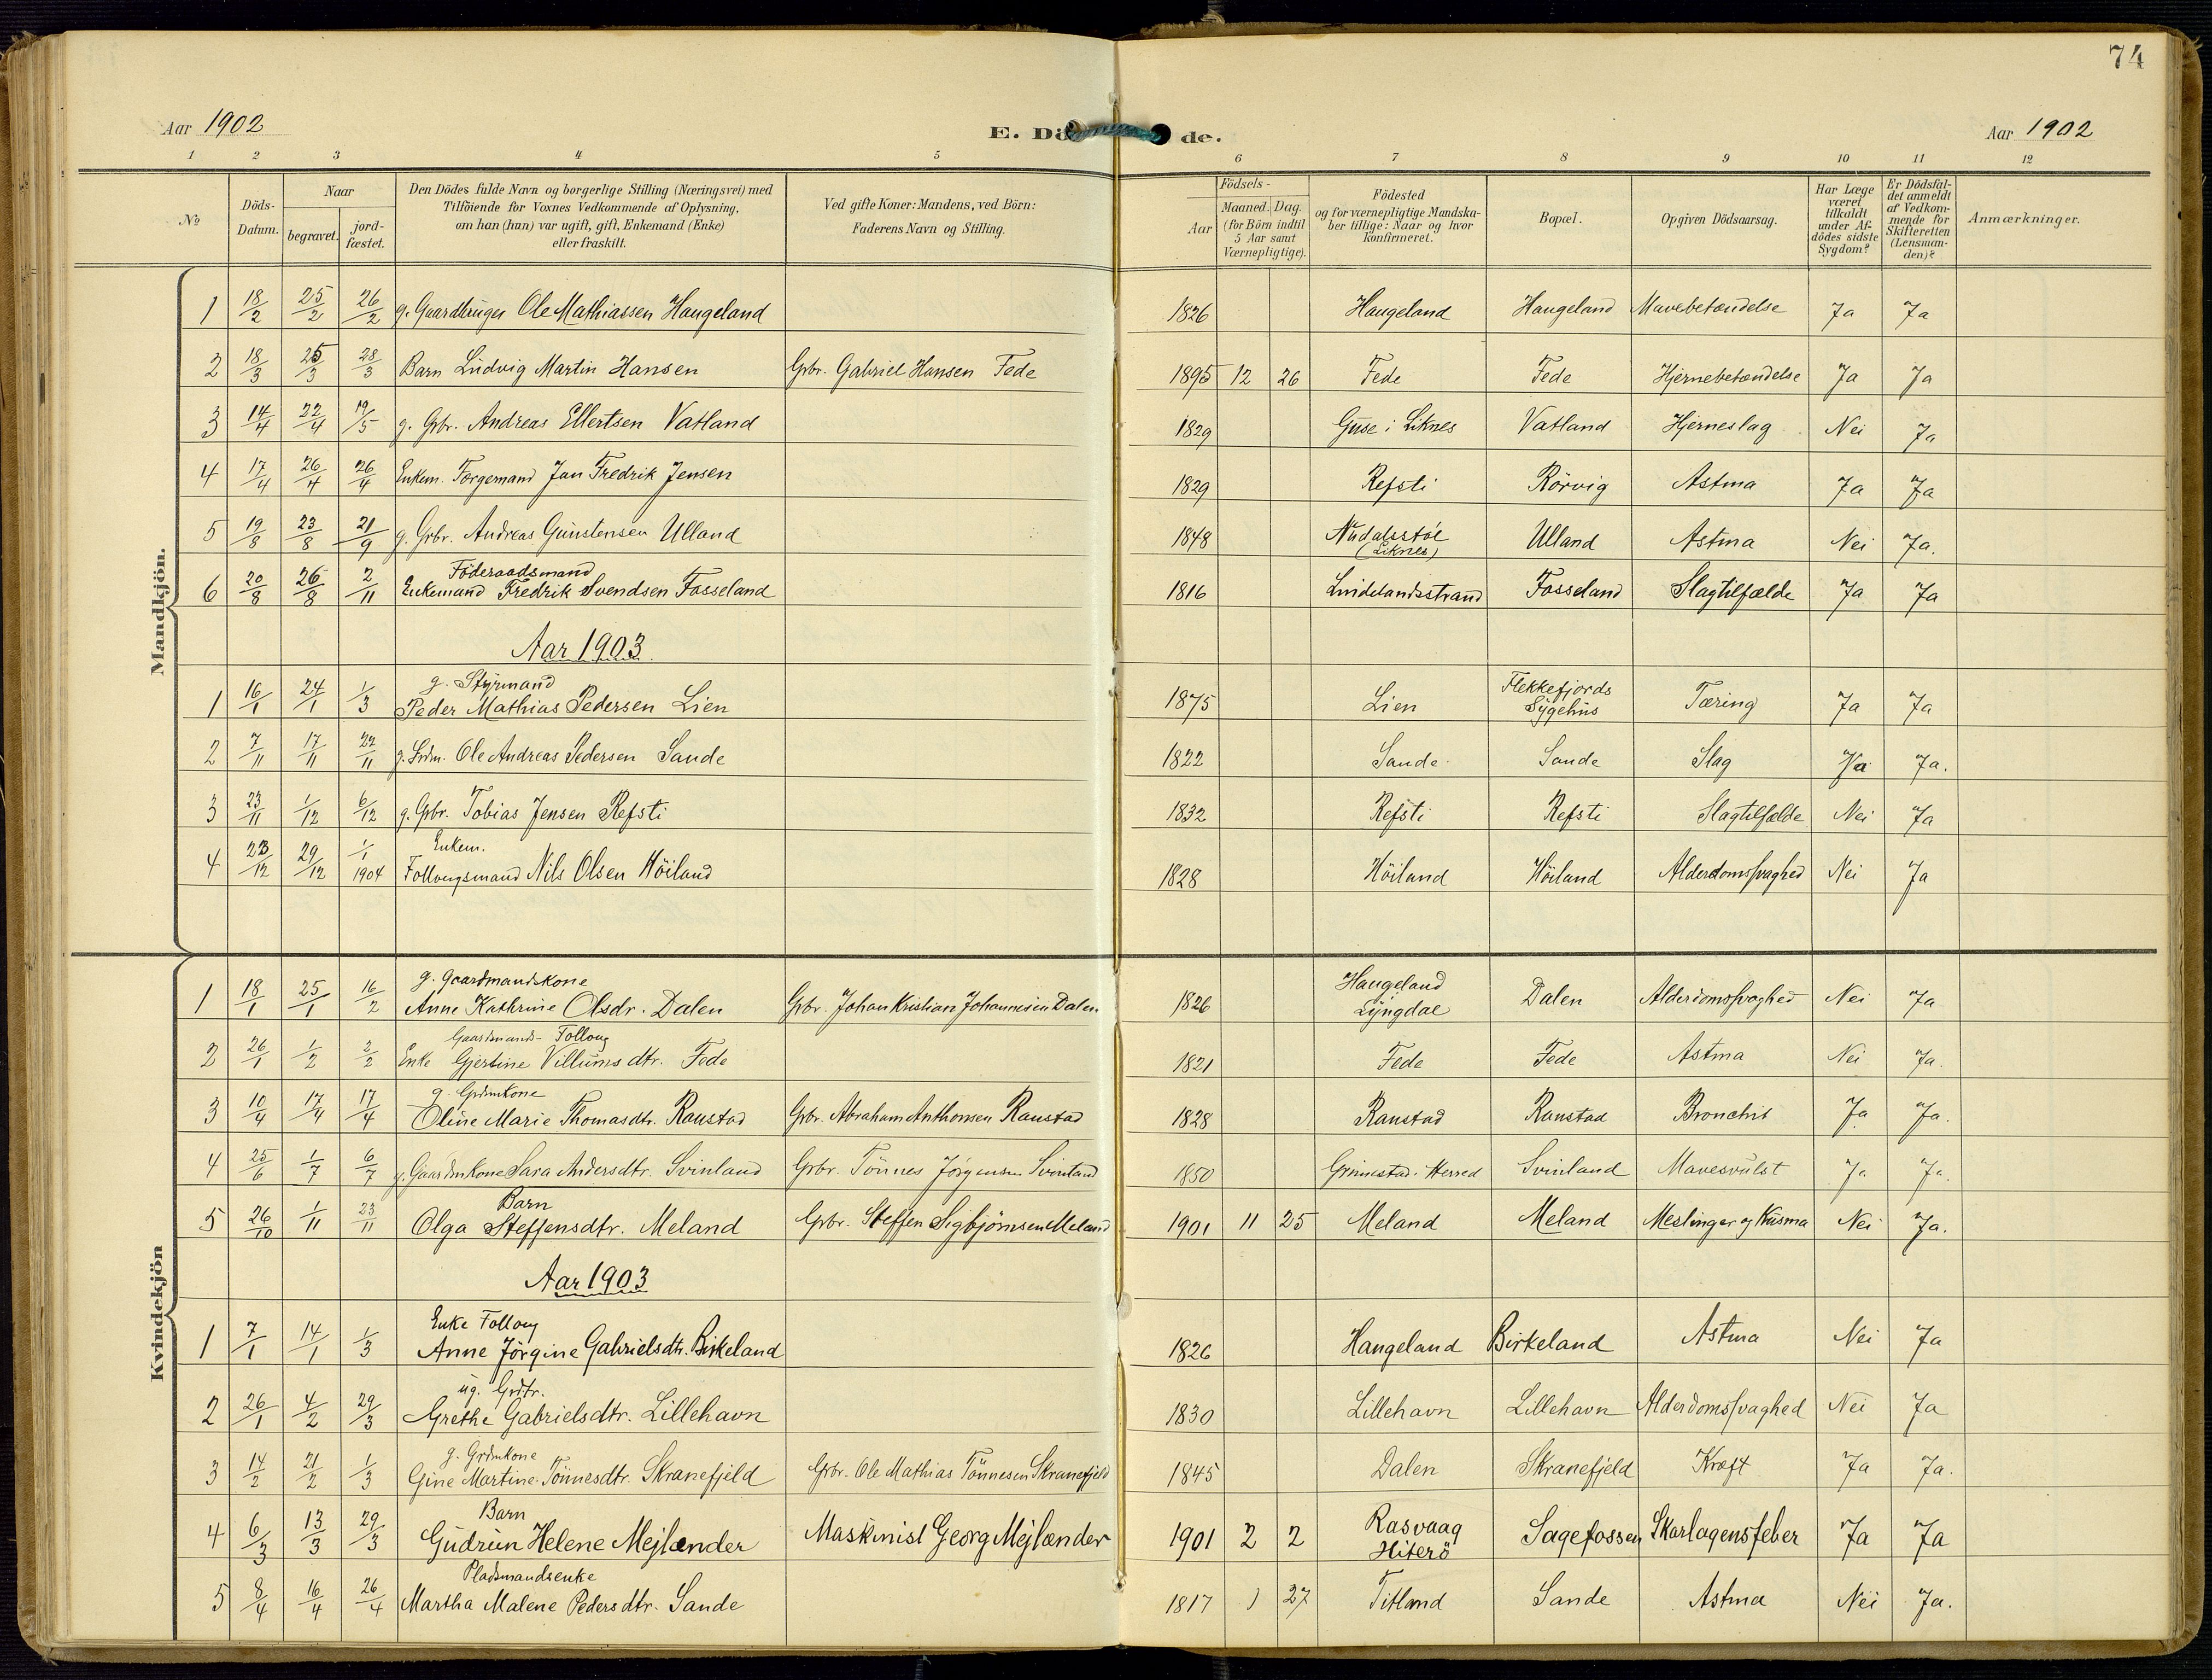 74
Aar 1902
E. Dö de.
Aar 1902
1 2 3 4 5 6 7 8 9 10 11 12
No
Döds-Datum.
Naar
begravet.
jord-fæstet.
Den Dödes fulde Navn og borgerlige Stilling (Næringsvei) med
Tilföiende for Voxnes Vedkommende af Oplysning,
om han (hun) var ugift, gift, Enkemand (Enke)
eller fraskilt.
Ved gifte Koner: Mandens, ved Börn:
Faderens Navn og Stilling.
Födsels-
Aar
Maaned. Dag.
(for Börn indtil
5 Aar samt
Værnepligtige).
Födested
og for værnepligtige Mandska-
ber tillige: Naar og hvor
konfirmeret.
Bopæl.
Opgiven Dödsaarsag.
Har Læge
været
tilkaldt
under Af-
dödes sidste
Sygdom?
Er Dödsfal-
det anmeldt
af Vedkom-
mende for
Skifteretten
(Lensman-
den)?
Anmærkninger.
Mandkjön.
1 18/2 25/2 26/2 g. Gaardbruger Ole Mathiassen Haugeland 1826 Haugeland Haugeland Mavebetændelse Ja Ja
2 18/3 25/3 28/3 Barn Ludvig Martin Hansen Grbr. Gabriel Hansen Fede 1895 12 26 Fede Fede Hjernebetændelse Ja Ja
3 14/4 22/4 19/5 g. Grbr. Andreas Ellertsen Vatland 1829 Guse i Liknes Vatland Hjerneslag Nei Ja
4 17/4 26/4 26/4 Enkem. Forgemand Jan Fredrik Jensen 1829 Refsti Rörvig Astma Ja Ja
5 19/8 23/8 21/9 g. Grbr. Andreas Gunstensen Ulland 1848 Nudalsstöl (Liknes) Ulland Astma Nei Ja.
Föderaadsmand
6 20/8 26/8 2/11 Enkemand Fredrik Svendsen Fosseland 1816 Lindelandsstrand Fosseland Slagtilfælde Ja Ja
Aar 1903.
g. Styrmand
1 16/1 24/1 1/3 Peder Mathias Pedersen Lien 1875 Lien Flekkefjords Sygehus Tæring Ja Ja
2 7/11 17/11 22/11 g. Grdm. Ole Andreas Pedersen Sande 1822 Sande Sande Slag Ja Ja.
3 23/11 1/12 6/12 g. Grbr. Tobias Jensen Refsti 1832 Refsti Refsti Slagtilfælde Nei Ja
Enkem.
4 23/12 29/12 1/1 1904 Follougsmand Nils Olsen Höiland 1828 Höiland Höiland Alderdomssvaghed Nei Ja
Kvindekjön
g. Gaardmandskone
1 18/1 25/1 16/2 Anne Kathrine Olsdr. Dalen Grbr. Johan Kristian Johannesen Dalen 1826 Haugeland Lyngdal Dalen Alderdomssvaghed Nei Ja
Gaardmands-Folloug
2 26/1 1/2 2/2 Enke Gjertine Villumsdtr. Fede 1821 Fede Fede Astma Nei Ja.
g. Grdmkone
3 10/4 17/4 17/4 Oline Marie Thomasdtr. Raustad Grbr. Abraham Anthonsen Raustad 1828 Raustad Raustad Bronchit Ja Ja.
4 25/6 1/7 6/7 g. Gaardmkone Sara Andersdtr. Svinland Grbr. Tönnes Jörgensen Svinland 1850 Grimestad i Herred Svinland Mavesvulst Ja Ja.
Barn
5 26/10 1/11 23/11 Olga Steffensdtr. Meland Grbr. Steffen Sigbjörnsen Meland 1901 11 25 Meland Meland Meslinger og Kusma Nei Ja.
Aar 1903
Enke Folloug
1 7/1 14/1 1/3 Anne Jörgine Gabrielsdtr. Birkeland 1826 Haugeland Birkeland Astma Nei Ja
ug. Grdtr.
2 26/1 4/2 29/3 Grethe Gabrielsdtr. Lillehavn 1830 Lillehavn Lillehavn Alderdomssvaghed Nei Ja
g. Grdmkone
3 14/2 21/2 1/3 Gine Martine Tönnesdtr. Skranefjeld Grbr. Ole Mathias Tönnesen Skranefjeld 1845 Dalen Skranefjeld Kræft Ja Ja.
Barn
4 6/3 13/3 29/3 Gudrun Helene Mejlænder Maskinist Georg Mejlænder 1901 2 2 Rasvaag Hiterö Sagefossen Skarlagensfeber Ja Ja
Pladsmandsenke
5 8/4 16/4 26/4 Martha Malene Pedersdtr. Sande 1817 1 27 Titland Sande Astma Nei Ja.